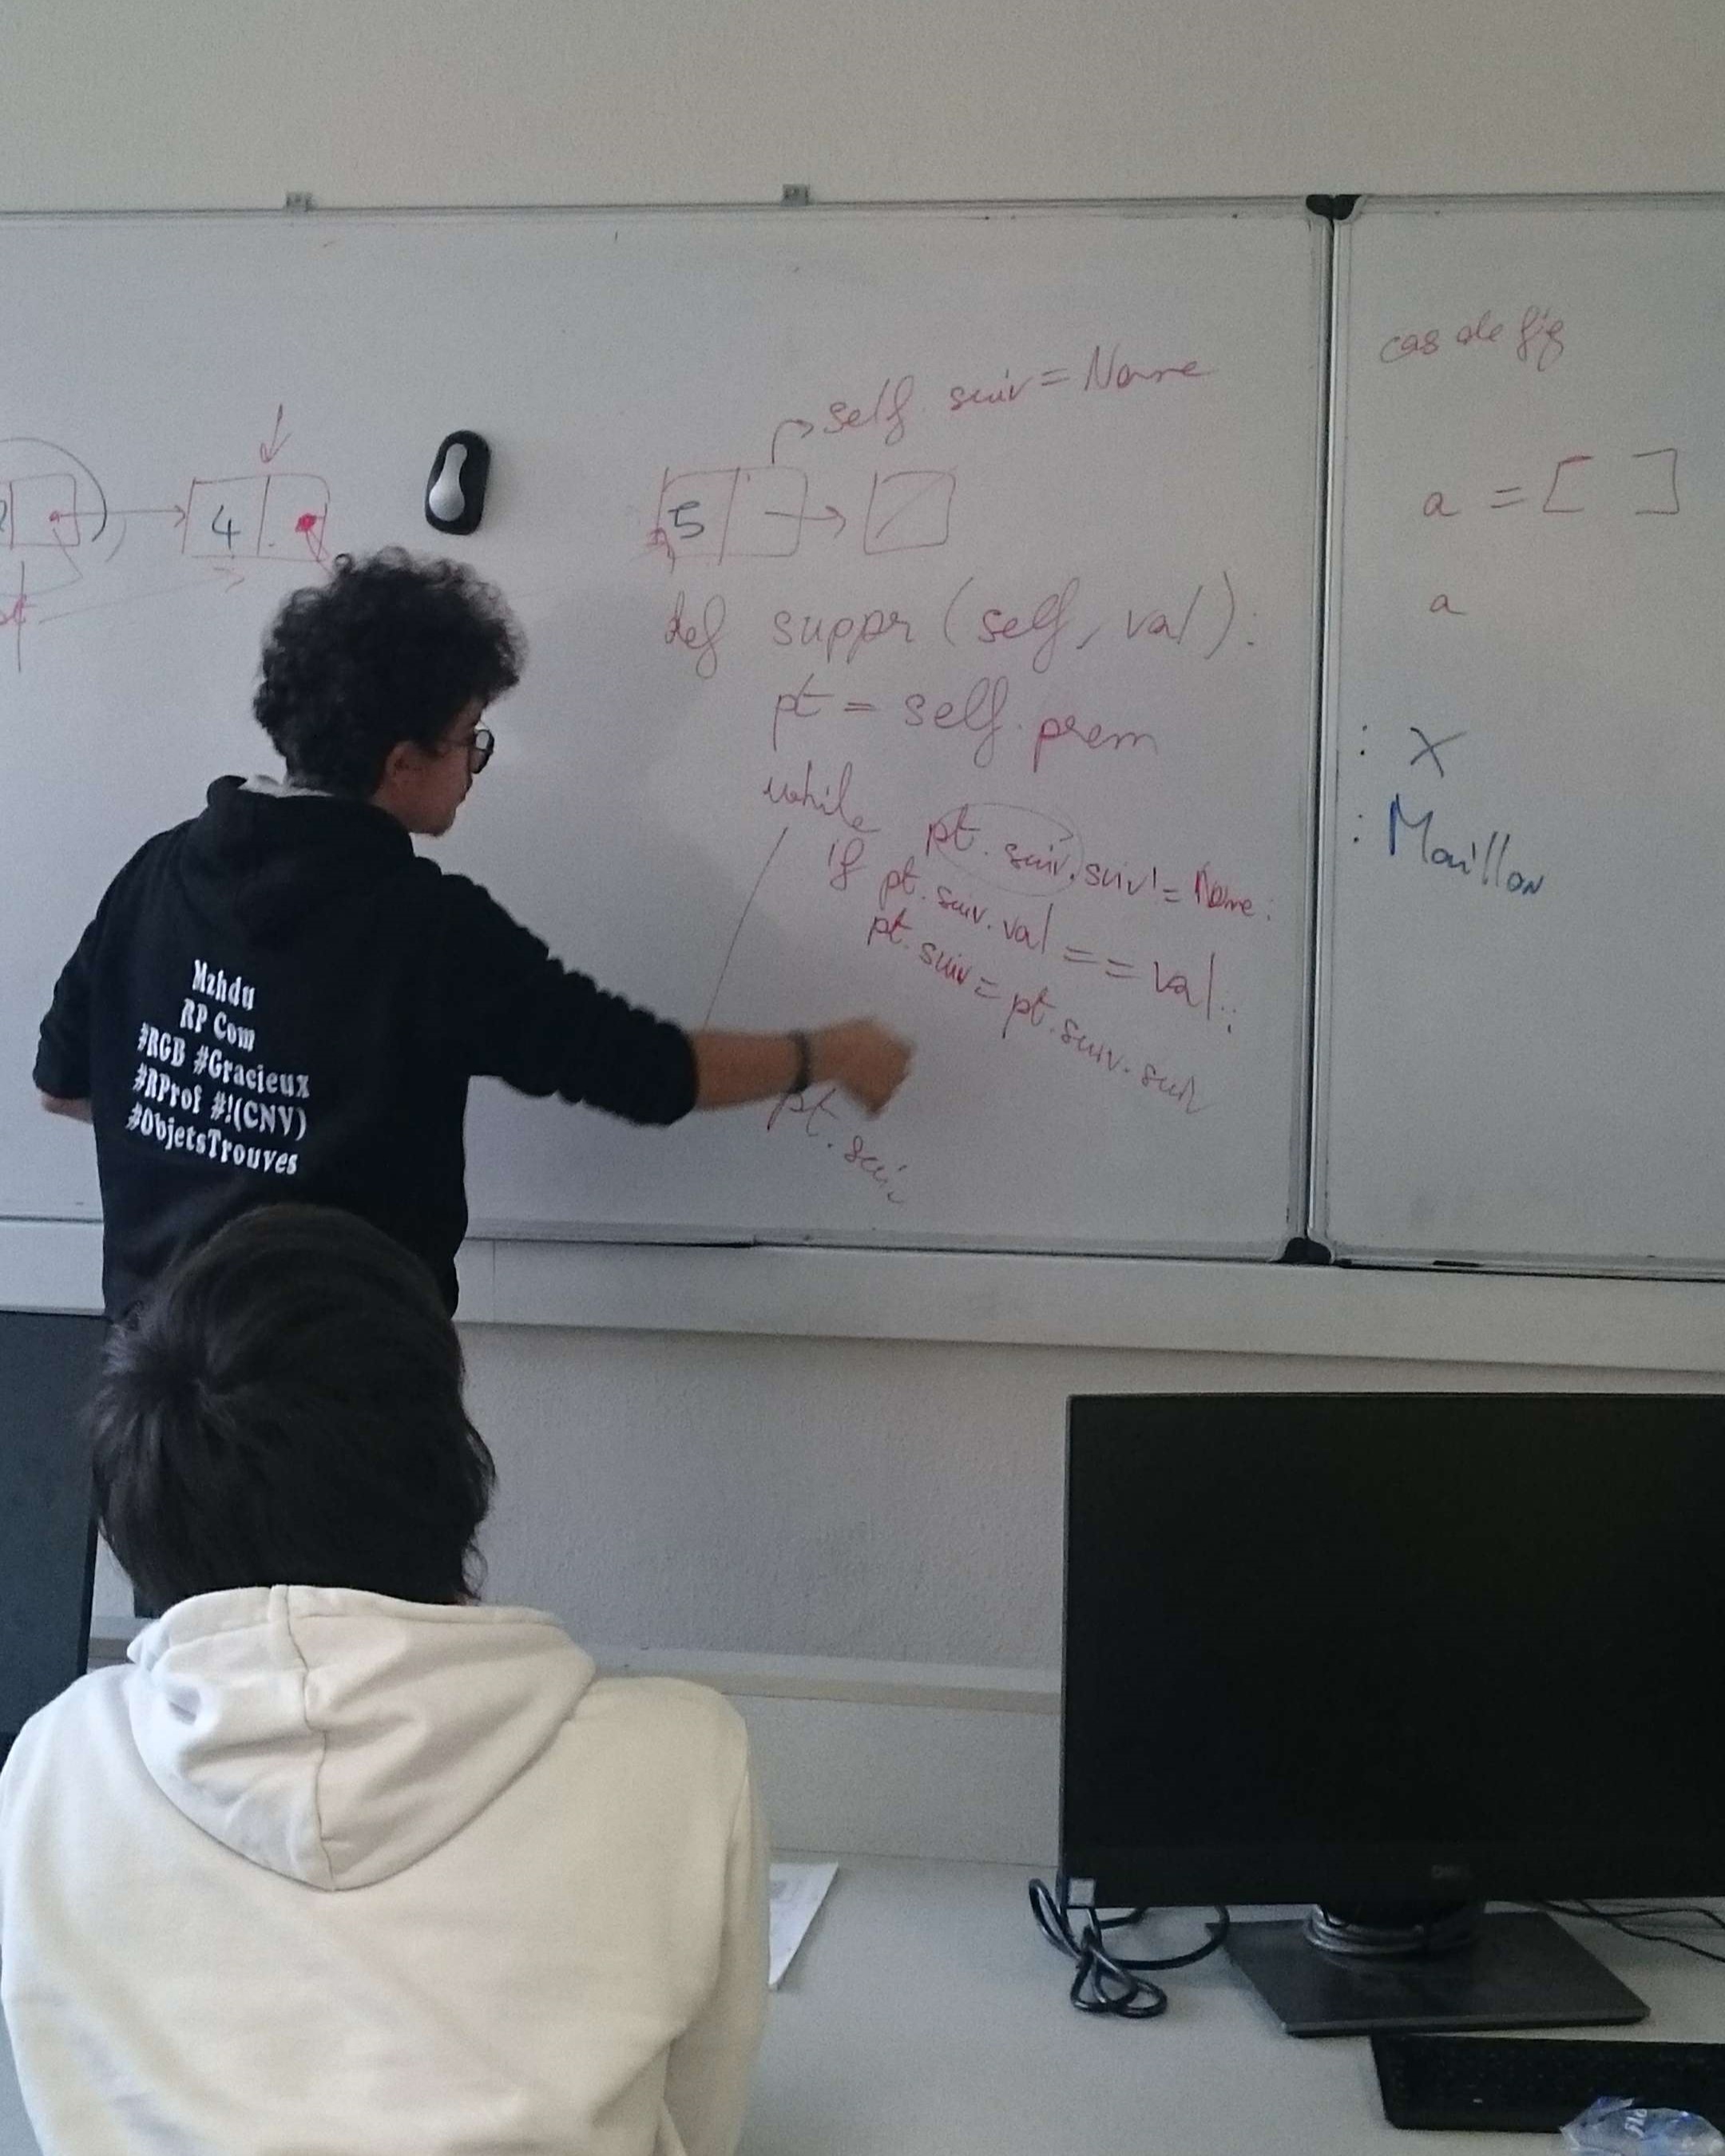 self.suiv = None
4
5
def suppr (self, val):
pt = self.prem
while pt.suiv.suiv != None:
if pt.suiv.val == val:
pt.suiv = pt.suiv.suiv
pt.suiv
cas de fig
a = [ ]
a
: X
: Maillon
Mzhdu
RP Com
#RGB #Gracieux
#RProf #!(CNV)
#ObjetsTrouves
DELL